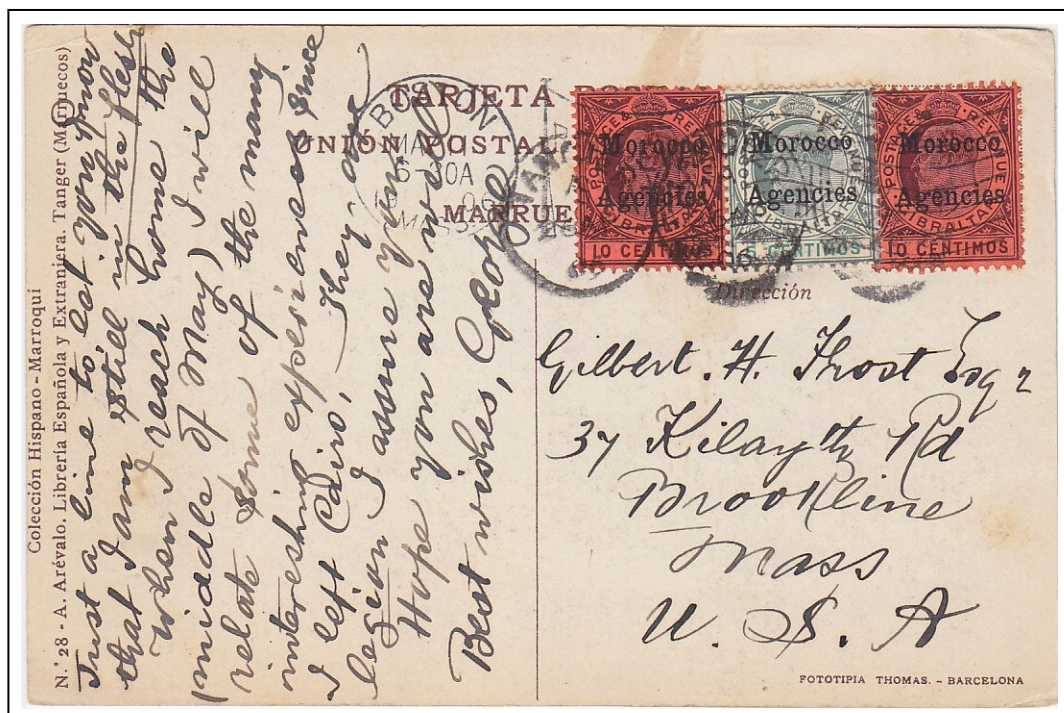 Colección Hispano - Marroqui
N.º 28 - A. Arévalo. Libreria Española y Extranjera. Tanger (Marruecos)
Just a line to let you know
that I am still in the flesh
When I reach home (the
middle of May) I will
relate some of the many
interesting experiences since
I left Cairo, - They are
legion I assure you.
Hope you are well
Best wishes, George
TARJETA
UNIÓN POSTAL
MARRUE
BOSTON
6-30A
MASS.
Morocco
Agencies
POSTAGE & REVENUE
GIBRALTAR
10 CENTIMOS
Morocco
Agencies
CENTIMOS
Morocco
Agencies
POSTAGE & REVENUE
GIBRALTAR
10 CENTIMOS
Dirección
Gilbert. H. Thost Esqr
37 Kilsyth Rd
Brookline
Mass
U. S. A
FOTOTIPIA THOMAS. - BARCELONA